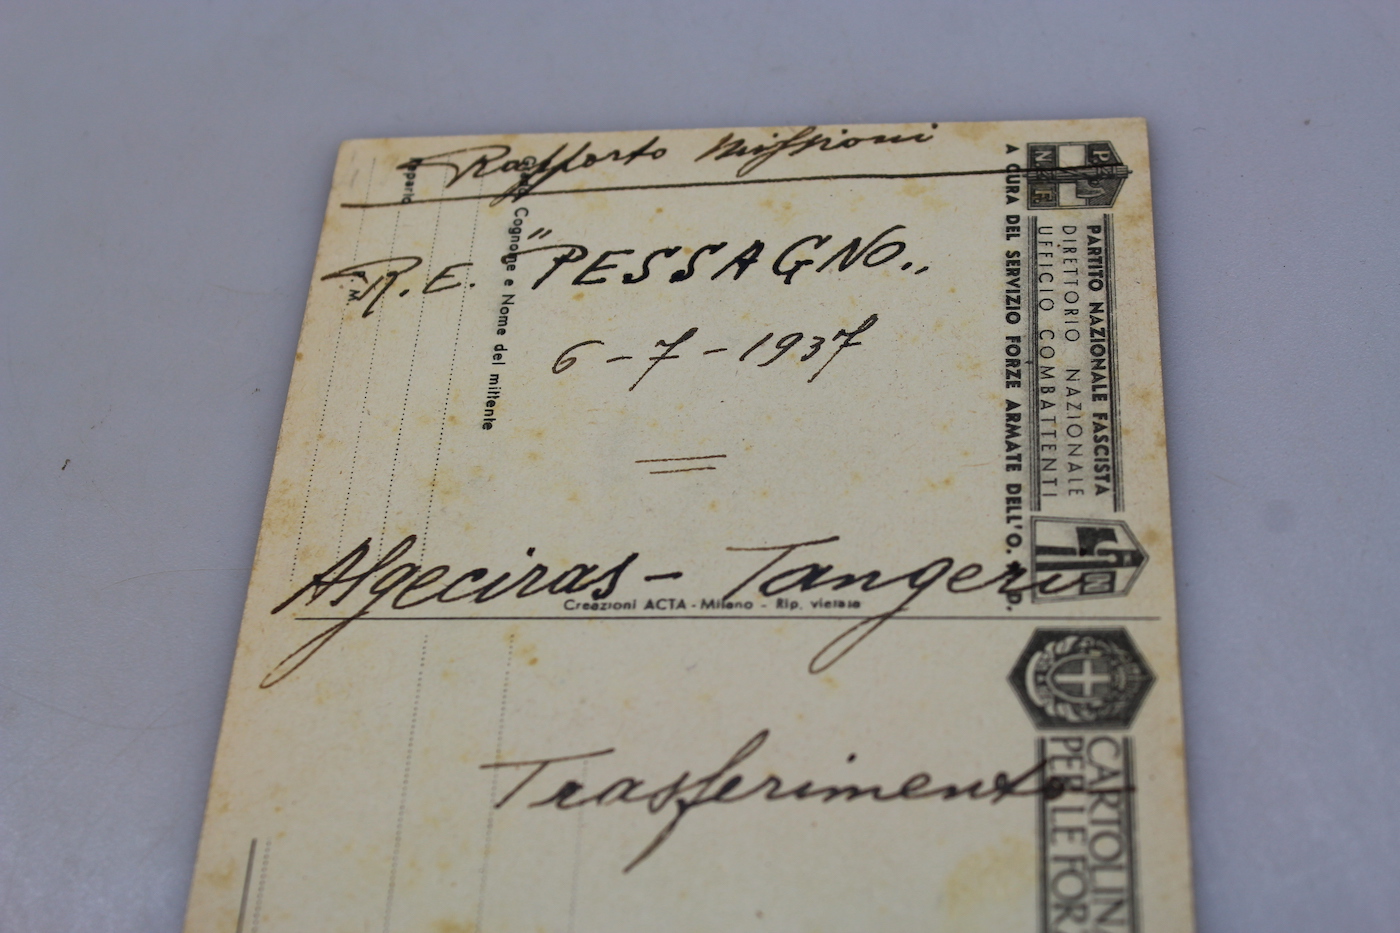 Rapporto Missioni
R. E. "PESSAGNO„
6-7-1937
Algeciras - Tangeri
Trasferimento
Reparto
Grado, Cognome e Nome del mittente
P. M.
Creazioni ACTA - Milano - Rip. vietata
P.N.F.
PARTITO NAZIONALE FASCISTA
DIRETTORIO NAZIONALE
UFFICIO COMBATTENTI
A CURA DEL SERVIZIO FORZE ARMATE DELL'O.
CARTOLIN
PER LE FOR